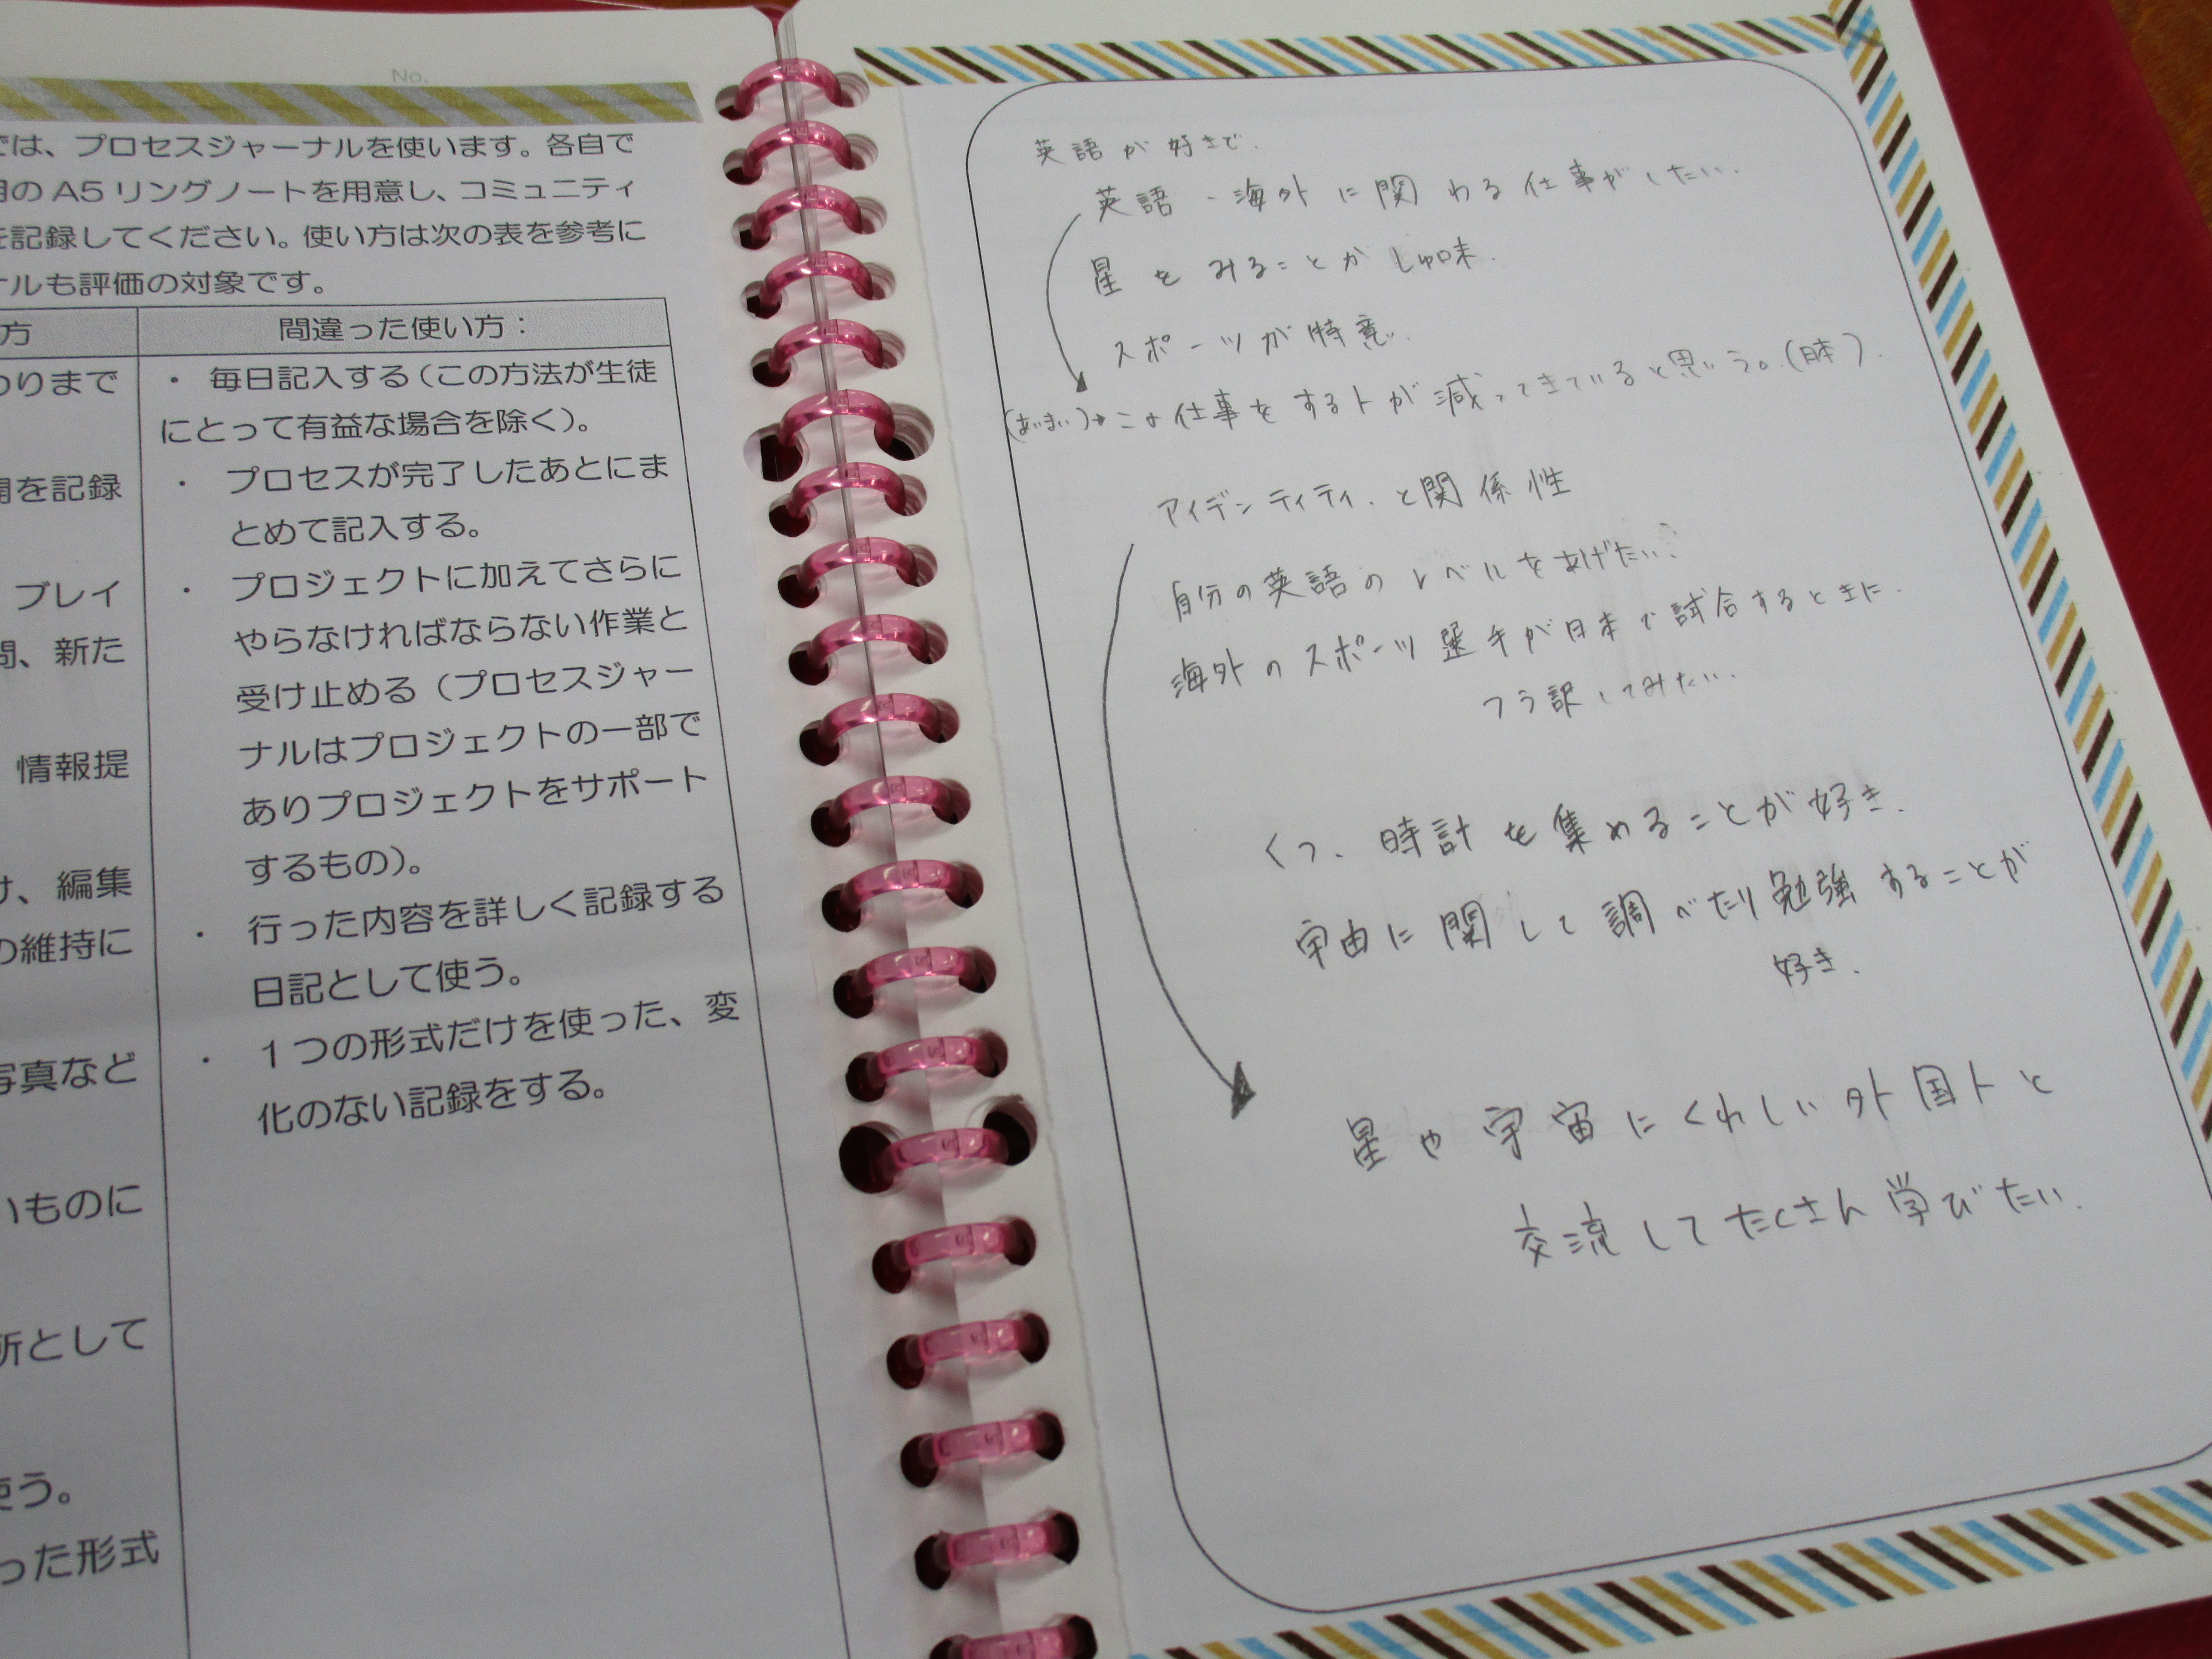 No.
では、プロセスジャーナルを使います。各自で
用の A5 リングノートを用意し、コミュニティ
を記録してください。使い方は次の表を参考に
ナルも評価の対象です。
方
わりまで
開を記録
ブレイ
問、新た
情報提
け、編集
の維持に
写真など
いものに
所として
使う。
った形式
間違った使い方：
・ 毎日記入する（この方法が生徒
にとって有益な場合を除く）。
・ プロセスが完了したあとにま
とめて記入する。
・ プロジェクトに加えてさらに
やらなければならない作業と
受け止める（プロセスジャー
ナルはプロジェクトの一部で
ありプロジェクトをサポート
するもの）。
・ 行った内容を詳しく記録する
日記として使う。
・ １つの形式だけを使った、変
化のない記録をする。
英語が好きで.
英語・海外に関わる仕事がしたい.
星をみることがしゅ味.
スポーツが特意.
(あいまい)→この仕事をする人が減ってきていると思いう。(日本).
アイデンティティ.と関係性
自分の英語のレベルをあげたい?
海外のスポーツ選手が日本で試合するときに.
つう訳してみたい.
くつ、時計を集めることが好き.
宇由に関して調べたり勉強することが
好き.
星や宇宙にくわしい外国人と
交流してたくさん学びたい.